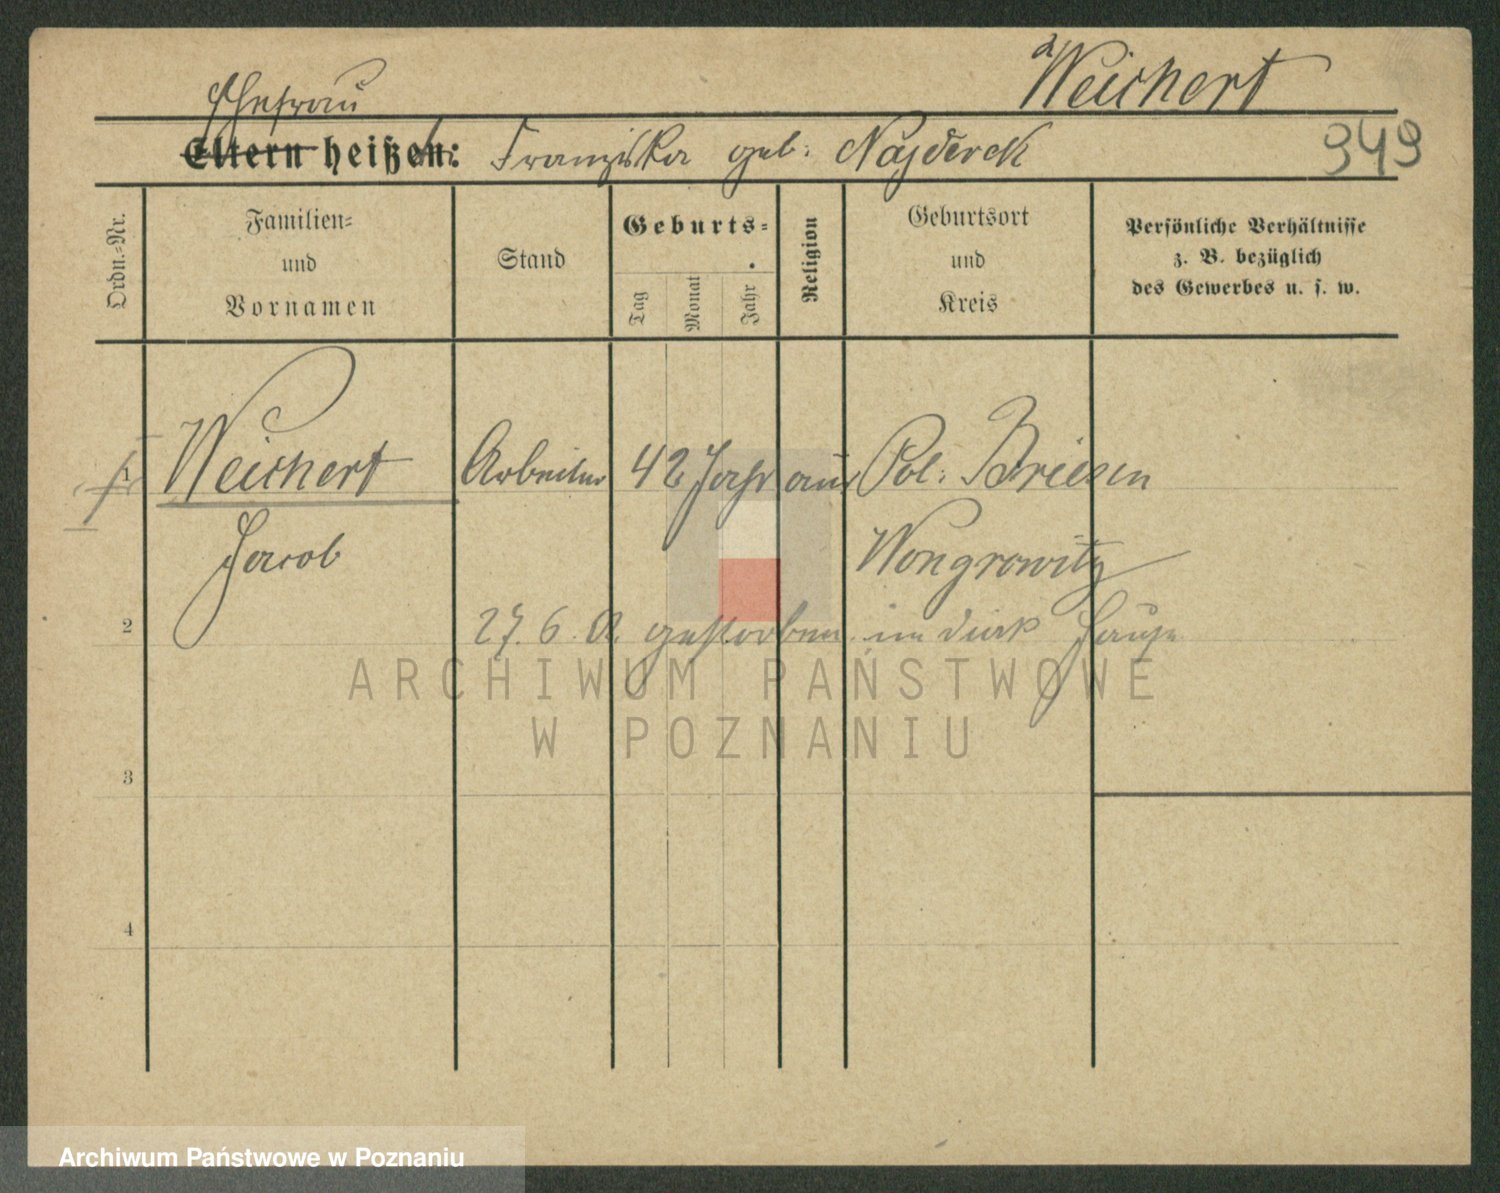 Weichert
Ehefrau
Eltern heißen: Franziska geb. Najderek
949
Ordn.-Nr.
Familien-
und
Vornamen
Stand
Geburts-
Tag
Monat
Jahr
Religion
Geburtsort
und
Kreis
Persönliche Verhältnisse
z. B. bezüglich
des Gewerbes u. s. w.
1 Weichert Arbeiter 42 Jahr aus Pol. Briesen
Jacob Wongrowitz
2 27. 6. gestorben im Hause
3
4
ARCHIWUM PAŃSTWOWE
W POZNANIU
Archiwum Państwowe w Poznaniu